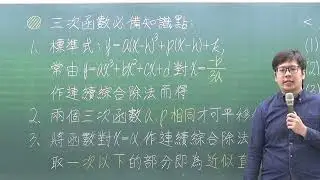 三次函數必備知識點：
1. 標準式：y=a(x-h)³+p(x-h)+k，
常由y=ax³+bx²+cx+d對x=-b/3a
作連續綜合除法而得
2. 兩個三次函數a.p相同才可平移
3. 將函數對x=α作連續綜合除法
取一次以下的部分即為近似直